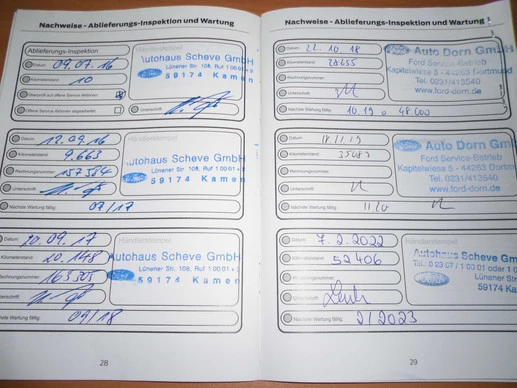 Nachweise - Ablieferungs-Inspektion und Wartung
Ablieferungs-Inspektion
Händlerstempel
Datum 09.07.16
Kilometerstand 10
Überprüft auf offene Service-Aktionen
Offene Service-Aktionen abgearbeitet
Unterschrift
Autohaus Scheve GmbH
Lünener Str. 108, Ruf 1 00 61
59174 Kamen
Datum 12.09.16
Kilometerstand 9.663
Rechnungsnummer 157584
Unterschrift
Nächste Wartung fällig: 09/17
Händlerstempel
Autohaus Scheve GmbH
Lünener Str. 108, Ruf 1 00 61
59174 Kamen
Datum 20.09.17
Kilometerstand 20.148
Rechnungsnummer 165505
Unterschrift
Nächste Wartung fällig: 09/18
Händlerstempel
Autohaus Scheve GmbH
Lünener Str. 108, Ruf 1 00 61
59174 Kamen
28
Nachweise - Ablieferungs-Inspektion und Wartung
Datum 22.10.18
Kilometerstand
Rechnungsnummer
Unterschrift
Nächste Wartung fällig: 10.19 o 48.000
Auto Dorn GmbH
Ford Service-Betrieb
Kapitelwiese 5 - 44263 Dortmund
Tel. 0231/413540
www.ford-dorn.de
Datum 18.11.19
Kilometerstand
Rechnungsnummer
Unterschrift
Nächste Wartung fällig: 11/20
Auto Dorn GmbH
Ford Service-Betrieb
Kapitelwiese 5 - 44263 Dortmund
Tel. 0231/413540
www.ford-dorn.de
Datum 7.2.2022
Kilometerstand 52406
Rechnungsnummer
Unterschrift
Nächste Wartung fällig: 2/2023
Händlerstempel
Autohaus Scheve GmbH
Tel.: 0 23 07 / 1 00 61 oder 1 0
Lünener
59174 Ka
29